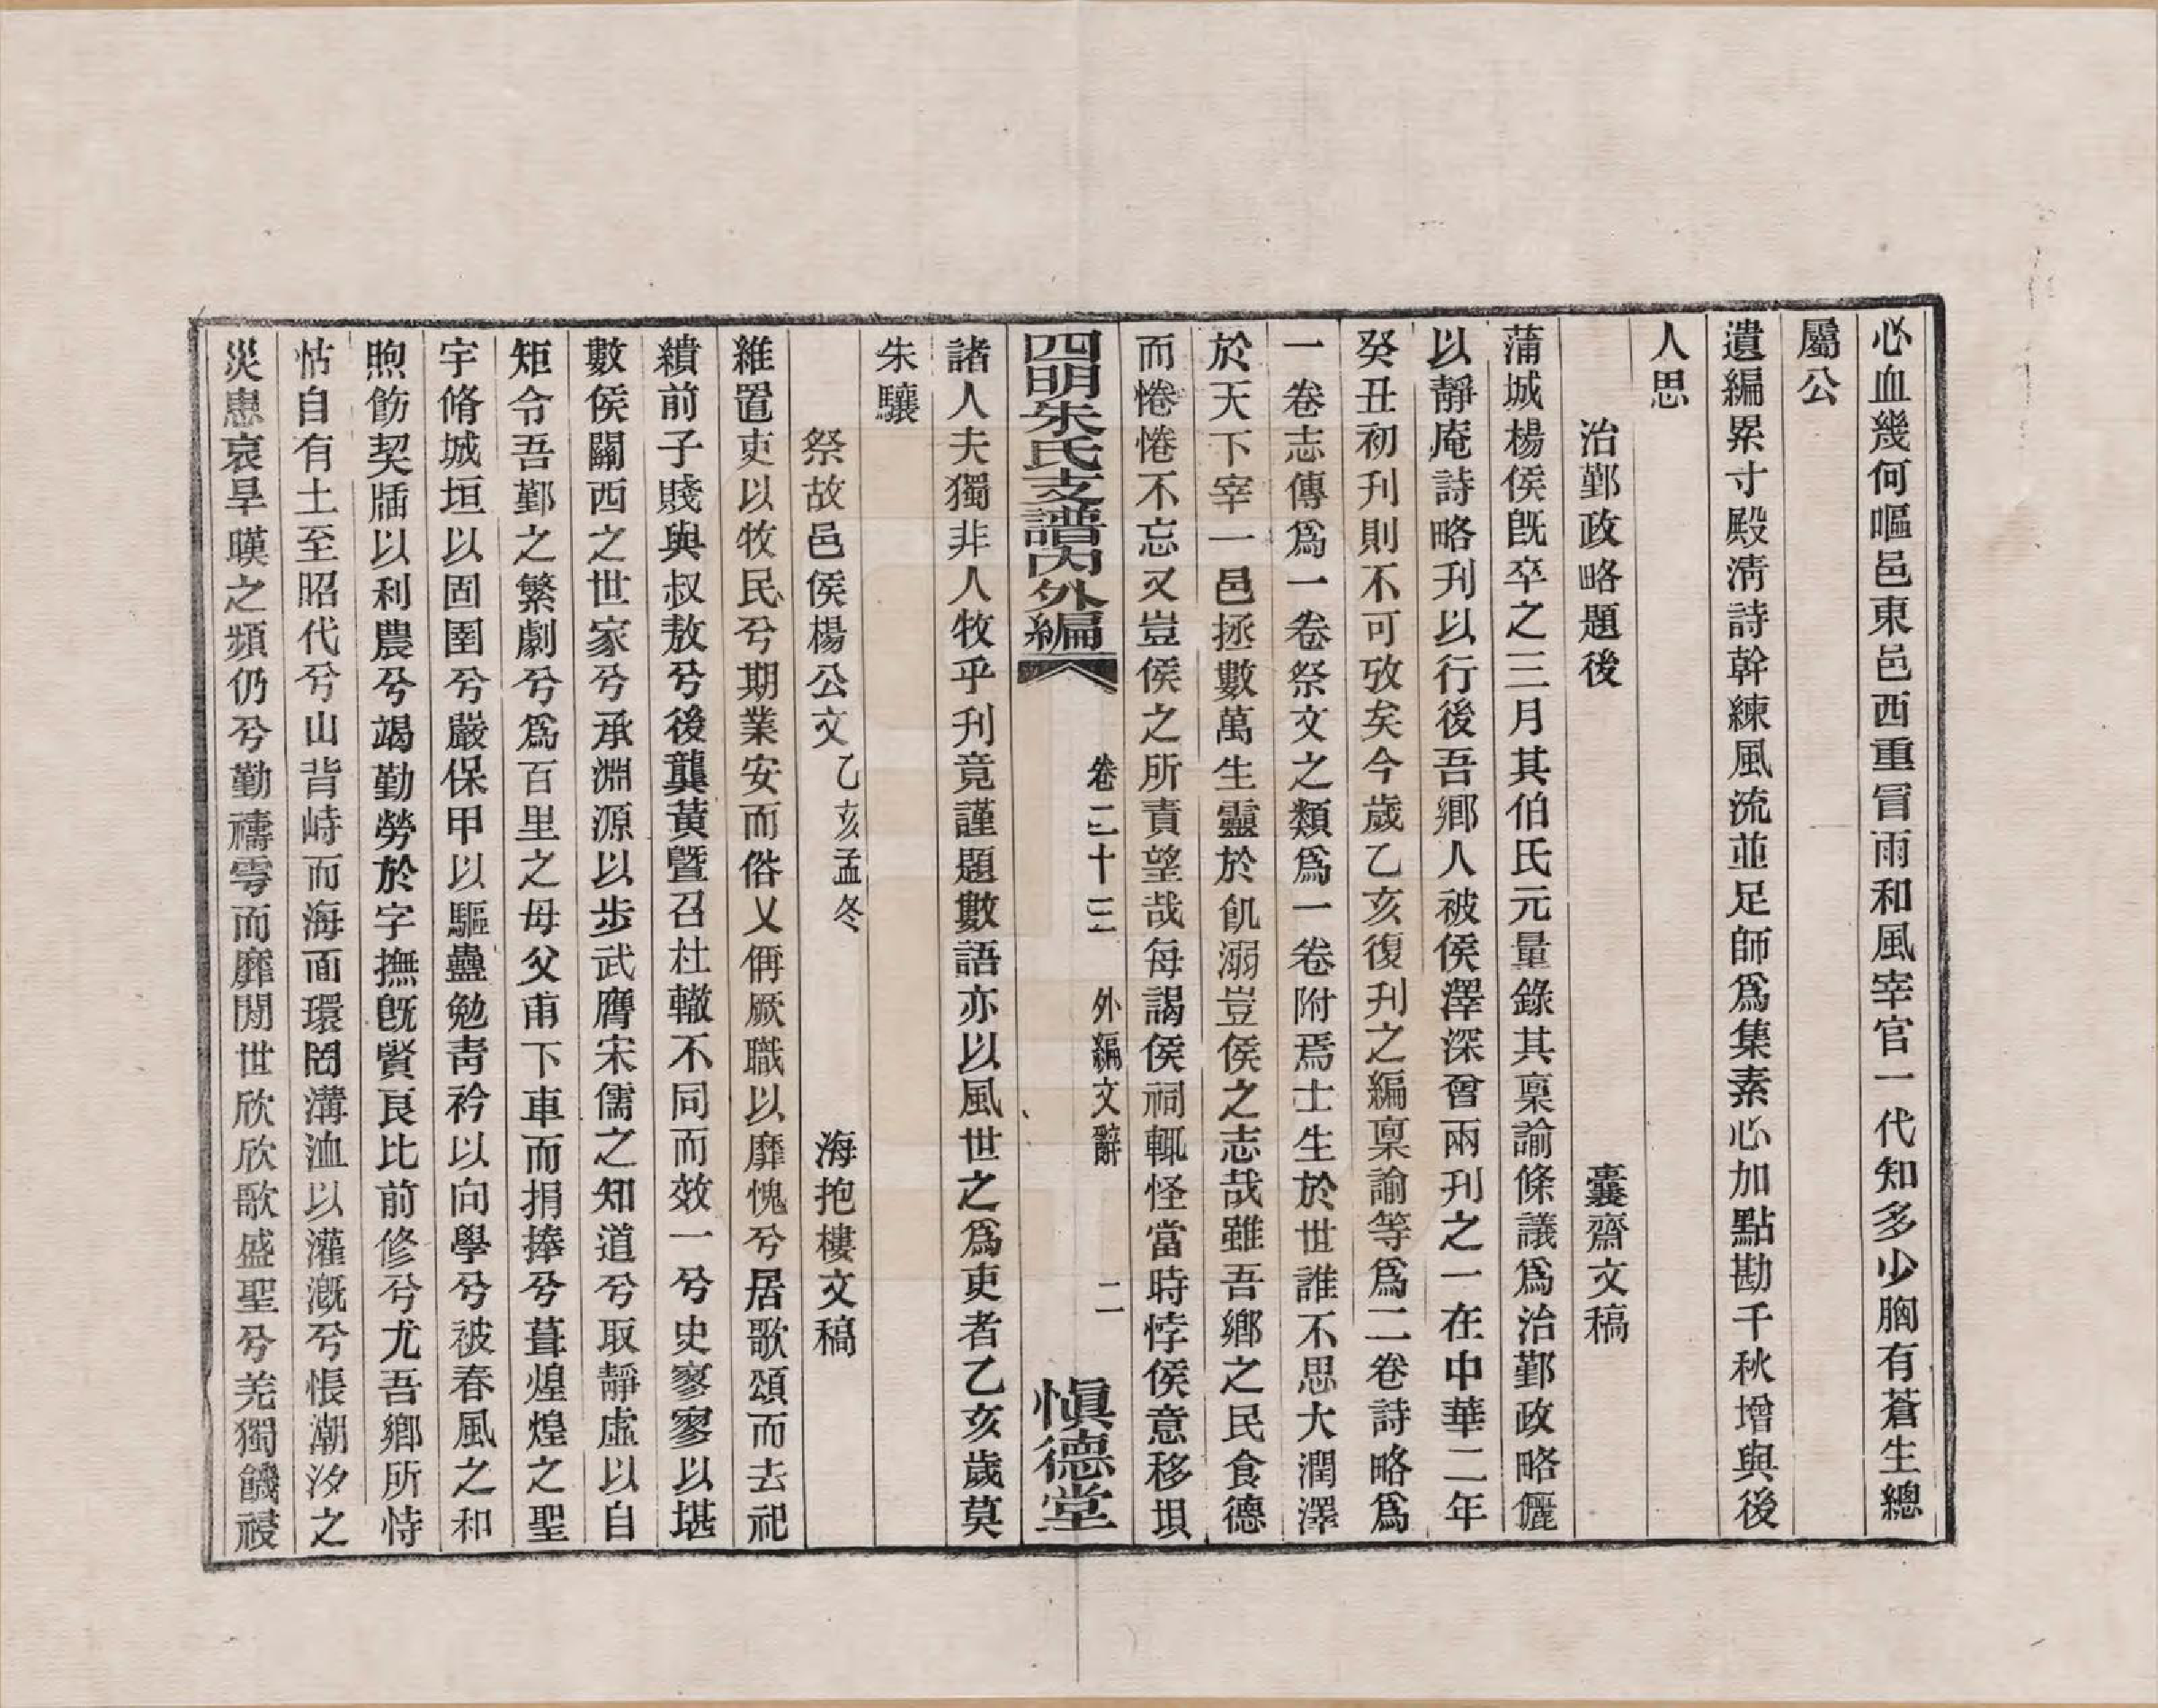 心血幾何嘔邑東邑西重冒雨和風宰官一代知多少胸有蒼生總
屬公
遺編累寸殿淸詩幹練風流並足師爲集素心加點勘千秋增與後
人思
治鄞政略題後　囊齋文稿
蒲城楊侯旣卒之三月其伯氏元量錄其稟諭條議爲治鄞政略儷
以靜庵詩略刋以行後吾鄕人被侯澤深曾兩刋之一在中華二年
癸丑初刋則不可攷矣今歲乙亥復刋之編稟諭等爲二卷詩略爲
一卷志傳爲一卷祭文之類爲一卷附焉士生於世誰不思大潤澤
於天下宰一邑拯數萬生靈於飢溺豈侯之志哉雖吾鄕之民食德
而惓惓不忘又豈侯之所責望哉每謁侯祠輒怪當時悖侯意移垻
四明朱氏支譜內外編　卷二十三　外編文辭　二　愼德堂
諸人夫獨非人牧乎刋竟謹題數語亦以風世之爲吏者乙亥歲莫
朱驤
祭故邑侯楊公文乙亥孟冬　海抱樓文稿
維置吏以牧民兮期業安而俗乂偁厥職以靡愧兮居歌頌而去祀
續前子賤與叔敖兮後龔黃曁召杜轍不同而效一兮史寥寥以堪
數侯關西之世家兮承淵源以步武膺宋儒之知道兮取靜虛以自
矩令吾鄞之繁劇兮爲百里之母父甫下車而捐捧兮葺煌煌之聖
宇脩城垣以固圉兮嚴保甲以驅蠱勉靑衿以向學兮被春風之和
煦飭契牐以利農兮竭勤勞於字撫旣賢良比前修兮尤吾鄕所恃
怙自有土至昭代兮山背峙而海面環罔溝洫以灌漑兮悵潮汐之
災患哀旱暵之頻仍兮勤禱雩而靡閒世欣欣歌盛聖兮羌獨饑祲